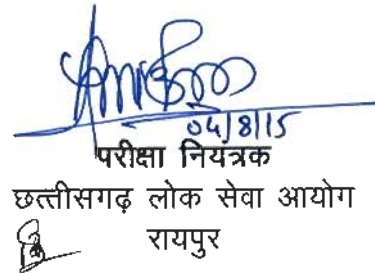 04/8/15
परीक्षा नियंत्रक
छत्तीसगढ़ लोक सेवा आयोग
रायपुर